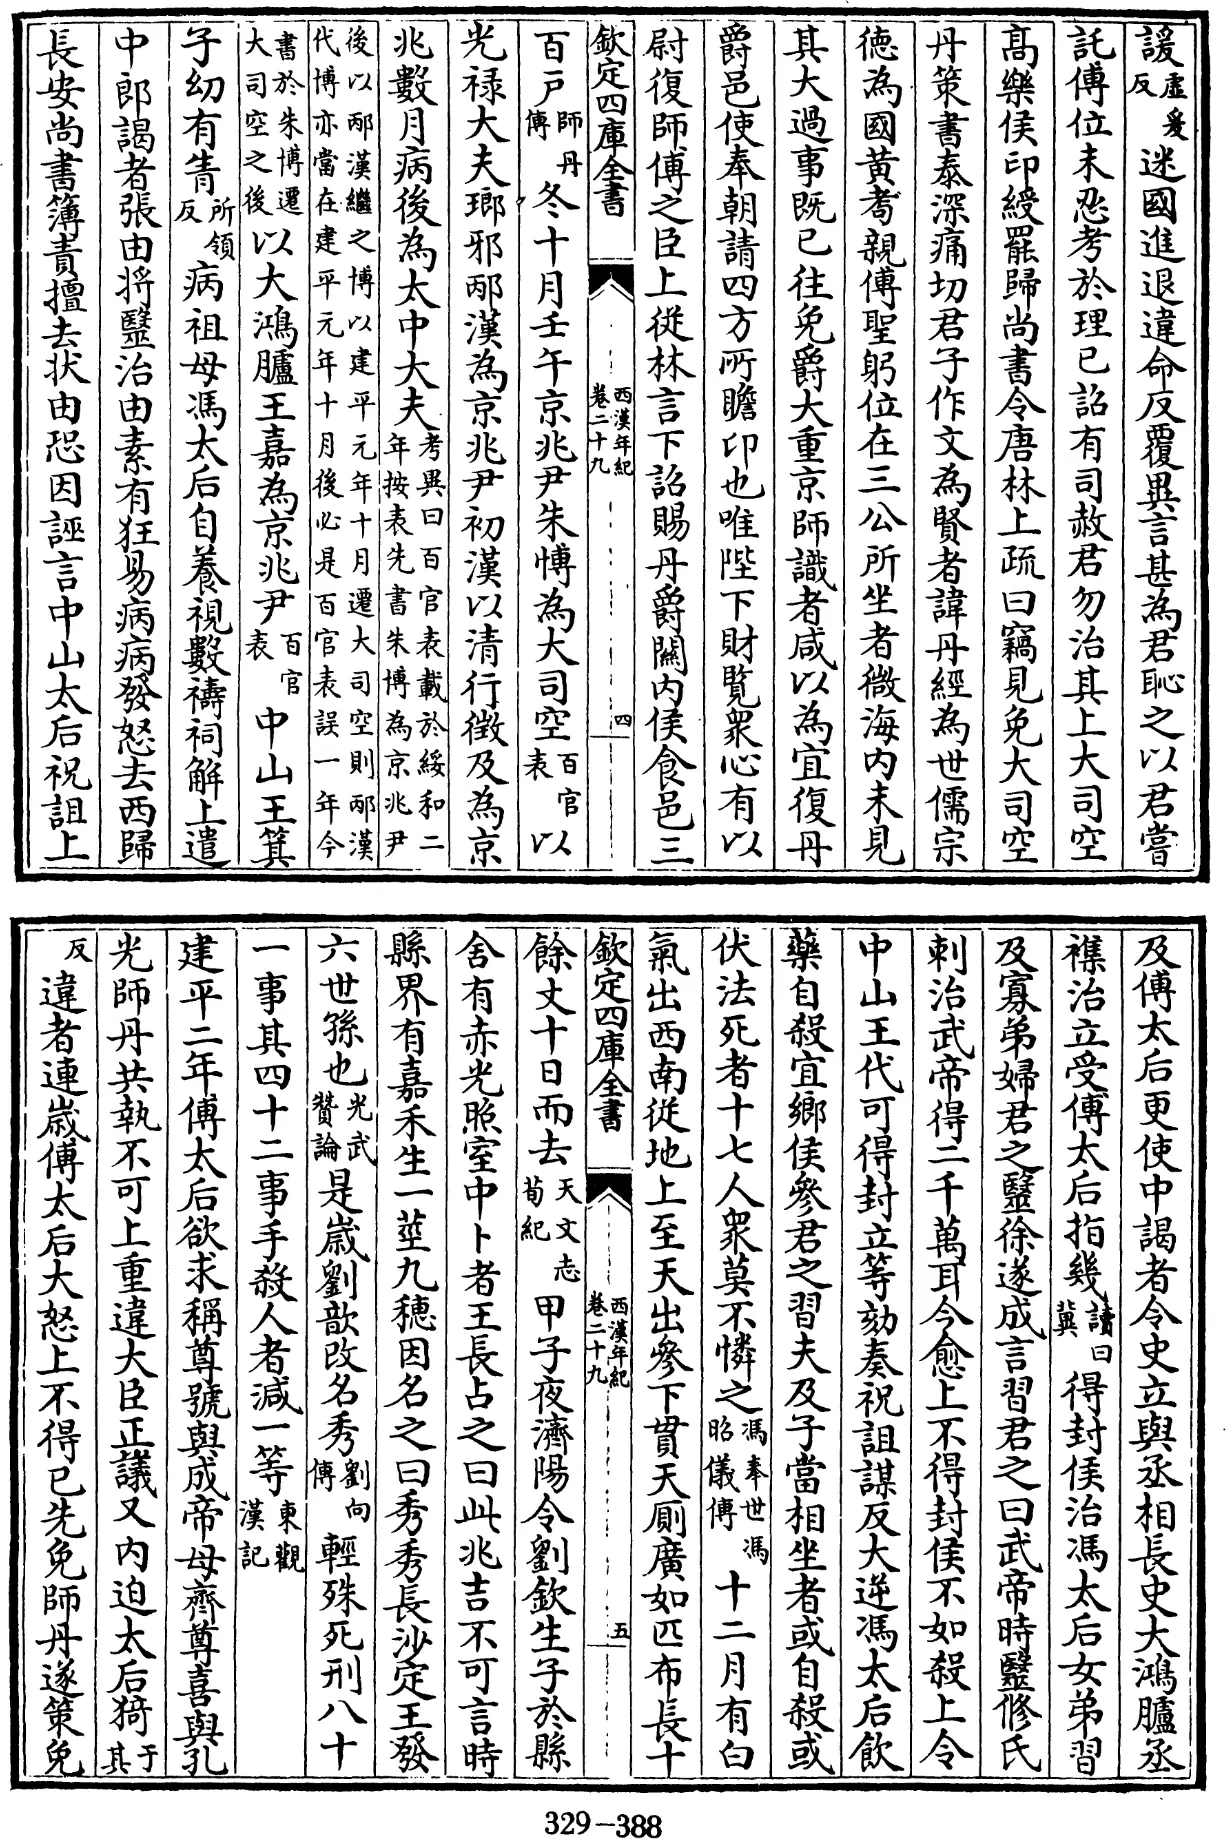 諼虛爰反迷國進退違命反覆異言甚為君恥之以君嘗
託傅位未忍考於理已詔有司赦君勿治其上大司空
髙樂侯印綬罷歸尚書令唐林上疏曰竊見免大司空
丹策書泰深痛切君子作文為賢者諱丹經為世儒宗
德為國黄耇親傅聖躬位在三公所坐者微海内未見
其大過事既已往免爵大重京師識者咸以為宜復丹
爵邑使奉朝請四方所瞻卬也唯陛下財覧衆心有以
尉復師傅之臣上從林言下詔賜丹爵關内侯食邑三
欽定四庫全書 西漢年紀卷二十九 四
百戸師丹傳冬十月壬午京兆尹朱博為大司空百官表以
光禄大夫瑯邪邴漢為京兆尹初漢以清行徴及為京
兆數月病後為太中大夫考異曰百官表載於綏和二年按表先書朱博為京兆尹
後以邴漢繼之博以建平元年十月遷大司空則邴漢代博亦當在建平元年十月後必是百官表誤一年今
書於朱博遷大司空之後以大鴻臚王嘉為京兆尹百官表中山王箕
子幼有眚所領反病祖母馮太后自養視數禱祠解上遣
中郎謁者張由將醫治由素有狂易病病發怒去西歸
長安尚書簿責擅去状由恐因誣言中山太后祝詛上
及傅太后更使中謁者令史立與丞相長史大鴻臚丞
襍治立受傅太后指幾讀曰冀得封侯治馮太后女弟習
及寡弟婦君之醫徐遂成言習君之曰武帝時醫修氏
刺治武帝得二千萬耳今愈上不得封侯不如殺上令
中山王代可得封立等劾奏祝詛謀反大逆馮太后飲
藥自殺宜鄉侯參君之習夫及子當相坐者或自殺或
伏法死者十七人衆莫不憐之馮奉世馮昭儀傳十二月有白
氣出西南從地上至天出參下貫天厠廣如匹布長十
欽定四庫全書 西漢年紀卷二十九 五
餘丈十日而去天文志荀紀甲子夜濟陽令劉欽生子於縣
舍有赤光照室中卜者王長占之曰此兆吉不可言時
縣界有嘉禾生一莖九穗因名之曰秀秀長沙定王發
六世孫也光武贊論是歲劉歆改名秀劉向傳輕殊死刑八十
一事其四十二事手殺人者減一等東觀漢記
建平二年傅太后欲求稱尊號與成帝母齊尊喜與孔
光師丹共執不可上重違大臣正議又内迫太后猗于其
反違者連歲傅太后大怒上不得已先免師丹遂策免
329-388